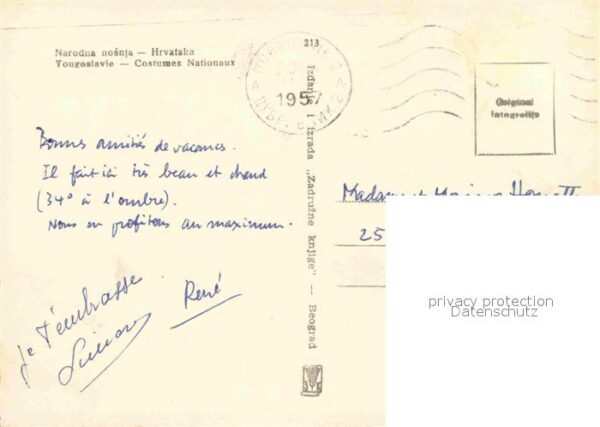 213
Narodna nošnja — Hrvatska
Yougoslavie — Costumes Nationaux
1957
Original
fotografija
Bonnes amitiés de vacances.
Il fait ici très beau et chaud
(34° à l'ombre).
Nous en profitons au maximum.
René
Je t'embrasse
Izdanje i izrada „Zadružne knjige" — Beograd
Madame et Monsieur
25
privacy protection
Datenschutz